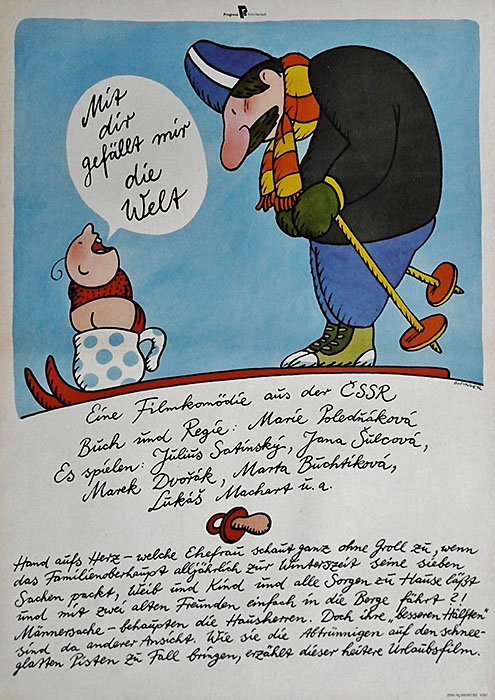 Progress Filmverleih
Mit
dir
gefällt mir
die
Welt
Eine Filmkomödie aus der ČSSR
Buch und Regie: Marie Poledňáková
Es spielen: Július Satinský, Jana Šulcová,
Marek Dvořák, Marta Buchtíková,
Lukáš Machart u.a.
Hand aufs Herz – welche Ehefrau schaut ganz ohne Groll zu, wenn
das Familienoberhaupt alljährlich zur Winterszeit seine sieben
Sachen packt, Weib und Kind und alle Sorgen zu Hause läßt
und mit zwei alten Freunden einfach in die Berge fährt?!
Männersache – behaupten die Hausherren. Doch ihre „besseren Hälften"
sind da anderer Ansicht. Wie sie die Abtrünnigen auf den schnee-
glatten Pisten zu Fall bringen, erzählt dieser heitere Urlaubsfilm.